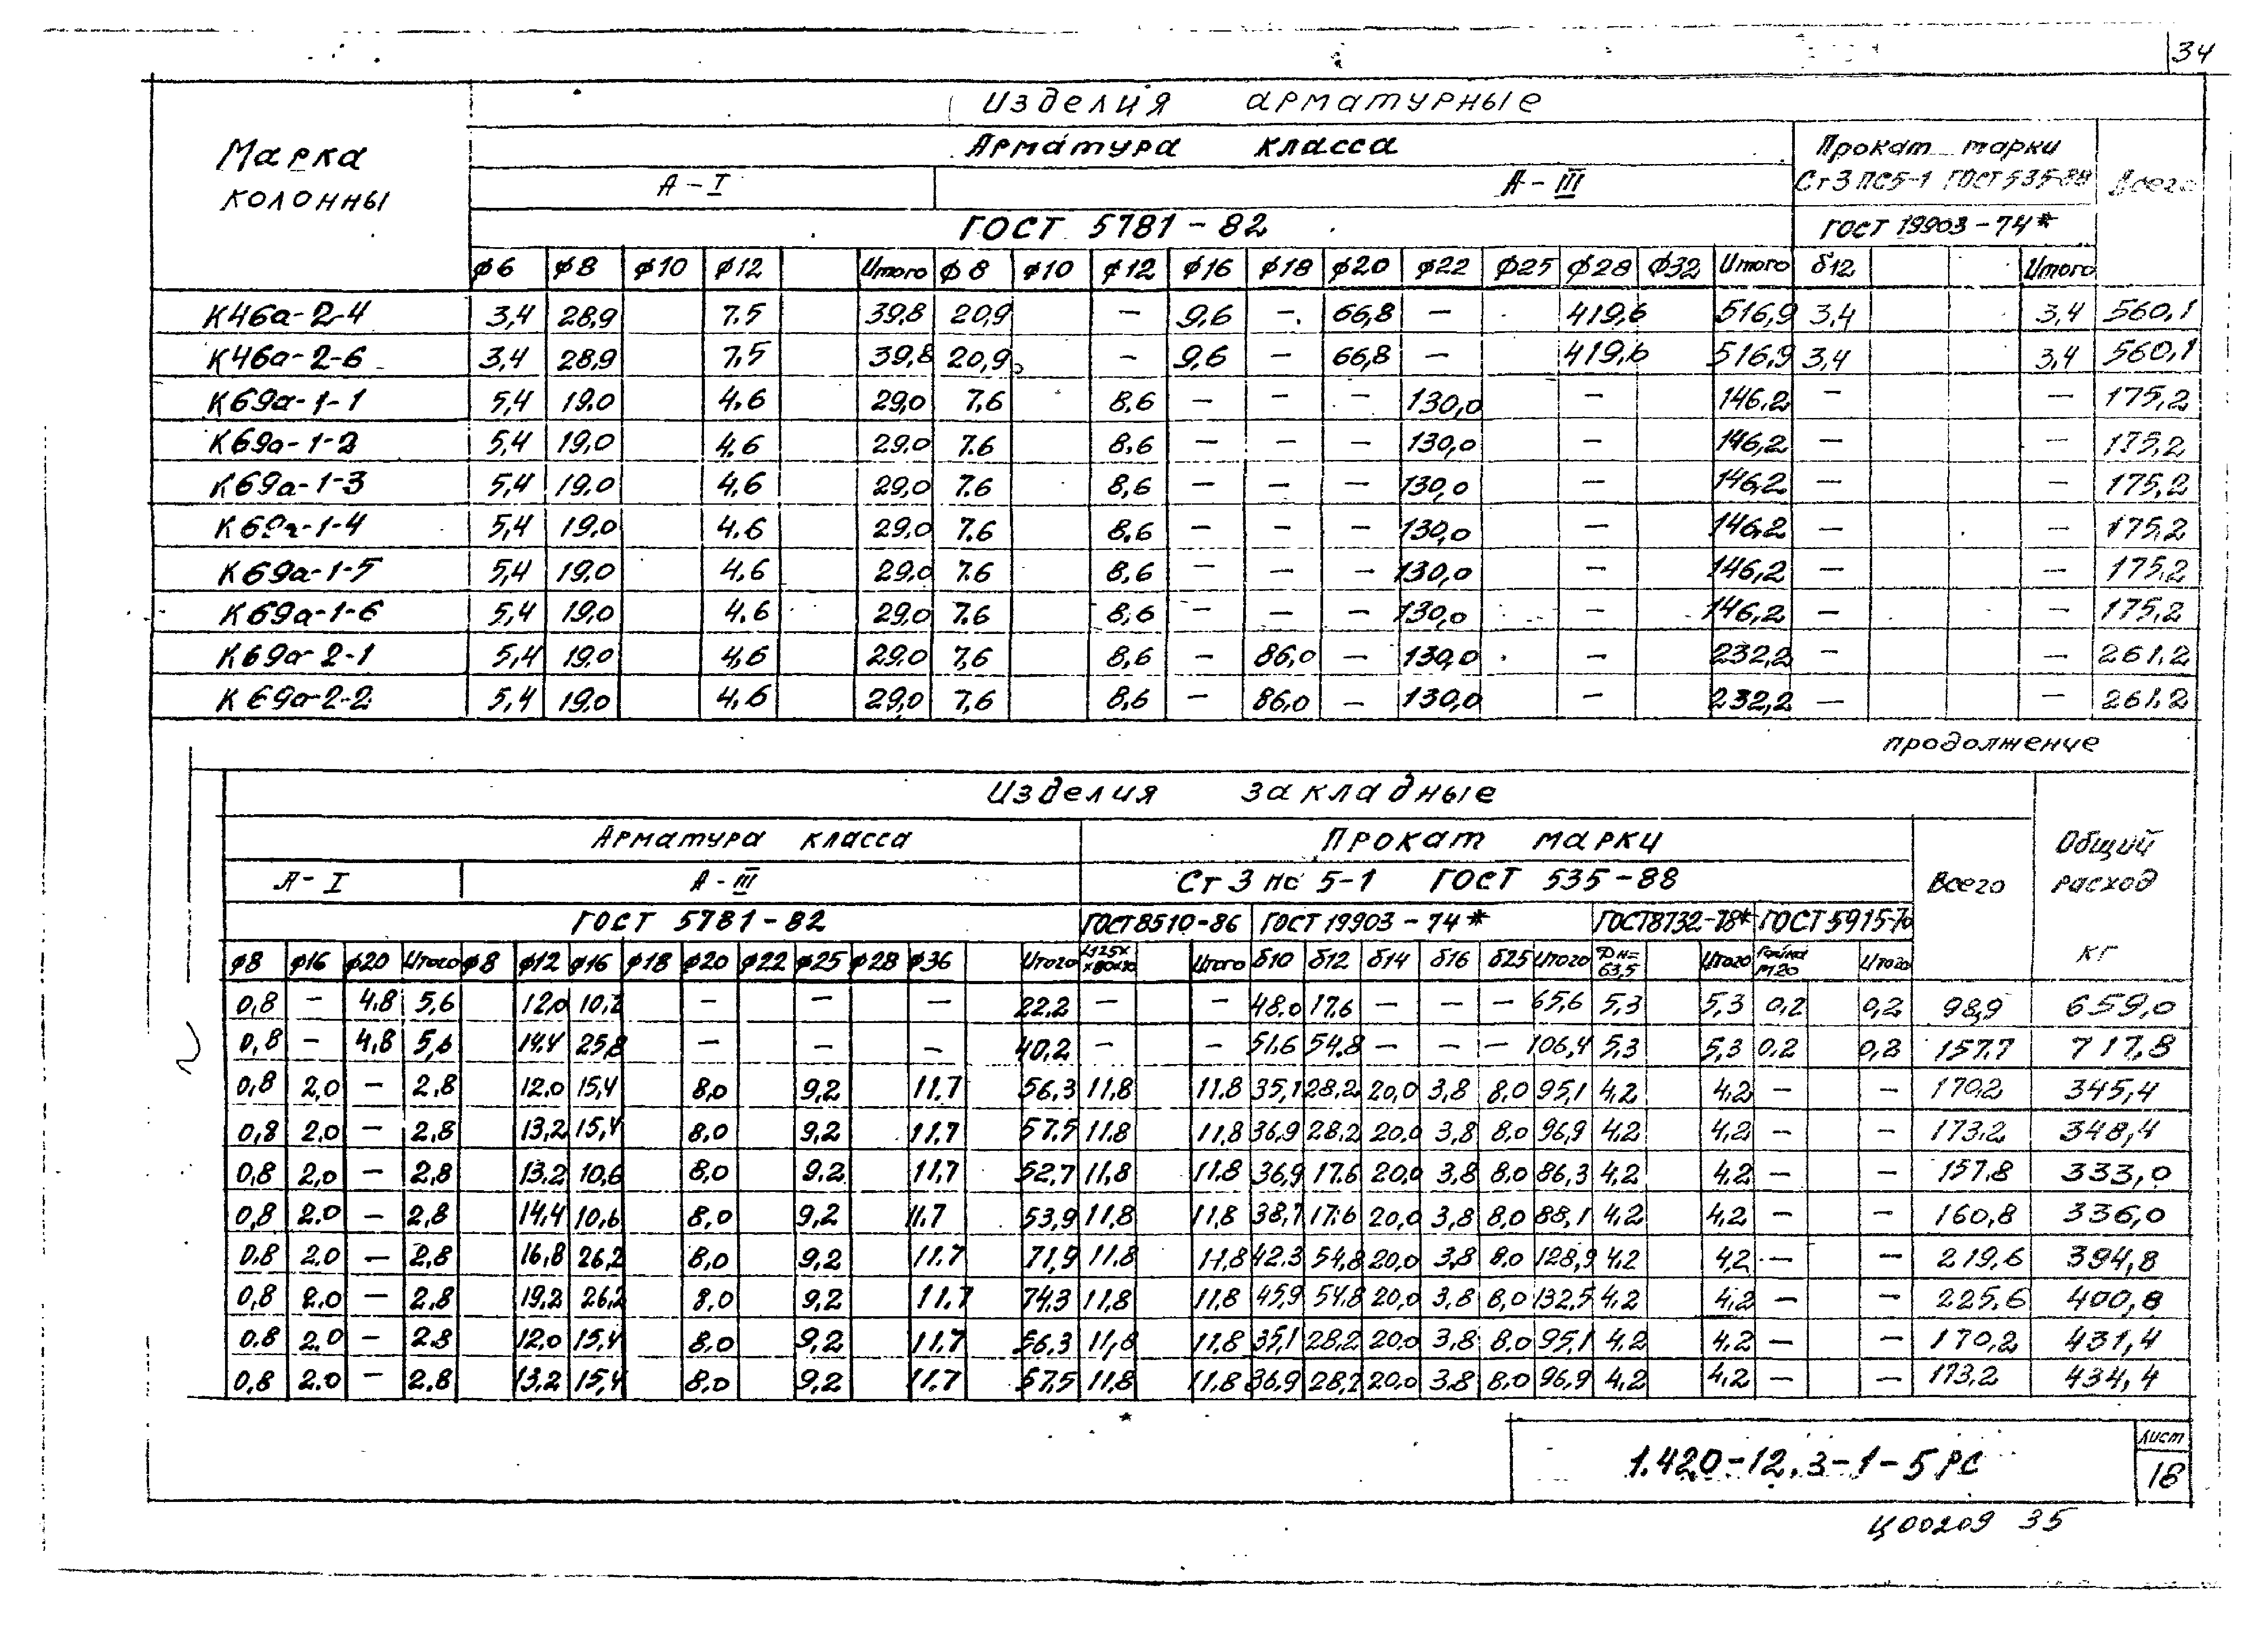 34
Изделия арматурные
Марка колонны
Арматура класса
Прокат марки
Ст3пс5-1 ГОСТ 535-88
Всего
А-I А-III
ГОСТ 5781-82 ГОСТ 19903-74*
ф6 ф8 ф10 ф12 Итого ф8 ф10 ф12 ф16 ф18 ф20 ф22 ф25 ф28 ф32 Итого δ12 Итого
К46а-2-4 3,4 28,9 7.5 39,8 20,9 — 9,6 — 66,8 — 419,6 516,9 3,4 3,4 560,1
К46а-2-6 3,4 28,9 7,5 39,8 20,9 — 9,6 — 66,8 — 419,6 516,9 3,4 3,4 560,1
К69а-1-1 5,4 19.0 4.6 29,0 7.6 8.6 — — — 130,0 — 146,2 — — 175,2
К69а-1-2 5,4 19,0 4.6 29.0 7.6 8,6 — — — 130,0 — 146,2 — — 175,2
К69а-1-3 5,4 19.0 4,6 29,0 7.6 8,6 — — — 130,0 — 146,2 — — 175,2
К69а-1-4 5,4 19.0 4.6 29,0 7.6 8.6 — — — 130,0 — 146,2 — — 175,2
К69а-1-5 5,4 19,0 4,6 29,0 7.6 8,6 — — — 130,0 — 146,2 — — 175,2
К69а-1-6 5,4 19,0 4.6 29,0 7.6 8,6 — — — 130,0 — 146,2 — — 175,2
К69а-2-1 5,4 19.0 4,6 29.0 7,6 8,6 — 86,0 — 130,0 — 232,2 — — 261,2
К69а-2-2 5,4 19.0 4,6 29,0 7,6 8,6 — 86,0 — 130,0 — 232,2 — — 261,2
продолжение
Изделия закладные
Арматура класса Прокат марки
Всего
Общий расход кг
А-I А-III Ст 3 пс 5-1 ГОСТ 535-88
ГОСТ 5781-82 ГОСТ8510-86 ГОСТ19903-74* ГОСТ8732-78* ГОСТ5915-70
ф8 ф16 ф20 Итого ф8 ф12 ф16 ф18 ф20 ф22 ф25 ф28 ф36 Итого L125х х80х10 Итого δ10 δ12 δ14 δ16 δ25 Итого Дн= 63,5 Итого Гайка М20 Итого
0,8 — 4.8 5,6 12,0 10,2 — — — 22,2 — — 48.0 17.6 — — — 65,6 5,3 5,3 0,2 0,2 98,9 659,0
0,8 — 4,8 5,6 14.4 25,8 — — — 40,2 — — 51.6 54.8 — — — 106,4 5,3 5,3 0.2 0,2 157.7 717,8
0,8 2,0 — 2,8 12.0 15,4 8,0 9,2 11.7 56,3 11,8 11.8 35,1 28,2 20,0 3,8 8,0 95,1 4,2 4,2 — — 170,2 345,4
0,8 2.0 — 2,8 13,2 15,4 8,0 9,2 11.7 57.5 11,8 11,8 36,9 28,2 20,0 3,8 8,0 96,9 4.2 4,2 — — 173.2 348,4
0,8 2,0 — 2,8 13.2 10,6 8,0 9.2 11.7 52,7 11,8 11.8 36,9 17.6 20,0 3,8 8,0 86,3 4,2 4,2 — — 157,8 333,0
0,8 2.0 — 2,8 14,4 10,6 8,0 9,2 11.7 53,9 11,8 11,8 38,7 17.6 20,0 3,8 8,0 88,1 4,2 4,2 — — 160,8 336,0
0.8 2.0 — 2,8 16,8 26,2 8,0 9,2 11.7 71,9 11.8 11,8 42.3 54,8 20,0 3,8 8,0 128,9 4.2 4,2 — — 219,6 394,8
0,8 2.0 — 2.8 19,2 26,2 8,0 9,2 11.7 74,3 11,8 11.8 45,9 54.8 20,0 3,8 8,0 132,5 4,2 4,2 — — 225.6 400,8
0.8 2.0 — 2.8 12,0 15,4 8,0 9,2 11.7 56,3 11,8 11,8 35,1 28,2 20,0 3,8 8,0 95,1 4,2 4,2 — — 170,2 431,4
0,8 2.0 — 2.8 13,2 15,4 8,0 9,2 11.7 57,5 11,8 11,8 36,9 28,2 20,0 3.8 8,0 96,9 4,2 4,2 — — 173,2 434,4
1.420-12.3-1-5РС
Лист
18
Ц00209 35